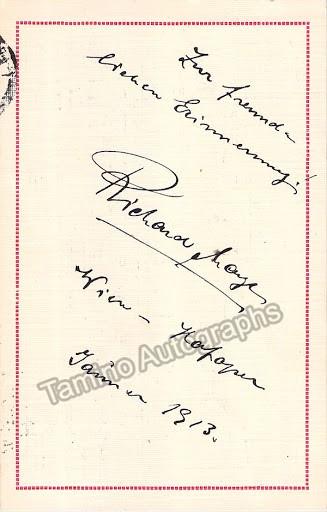 Zur freund-
lichen Erinnerung,
Richard Mayr
Wien - Hofoper
Jänner 1913.
Tamino Autographs